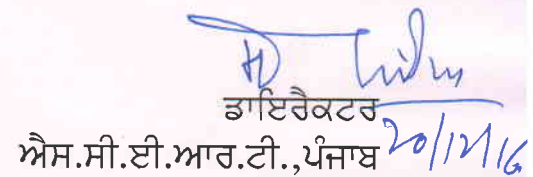 ਡਾਇਰੈਕਟਰ
ਐਸ.ਸੀ.ਈ.ਆਰ.ਟੀ.,ਪੰਜਾਬ 20/12/16